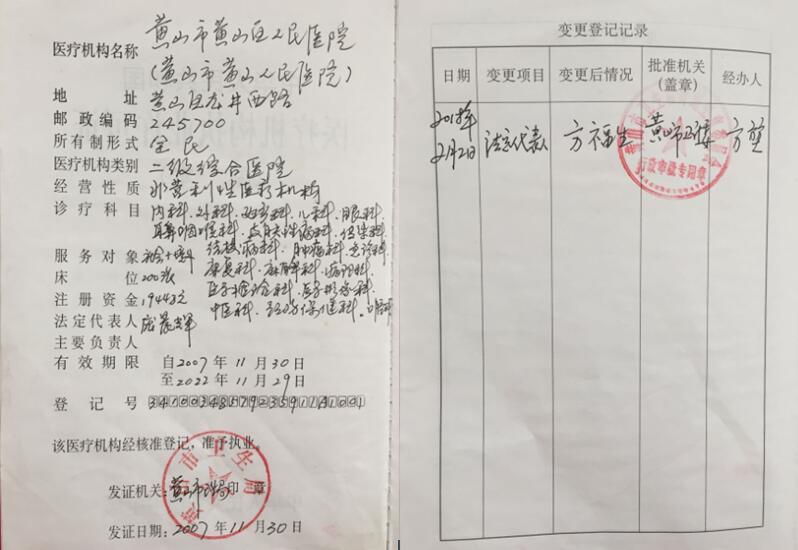 医疗机构名称 黄山市黄山区人民医院
(黄山市黄山人民医院)
地 址 黄山区龙井西路
邮政编码 245700
所有制形式 全民
医疗机构类别 二级综合医院
经营性质 非营利性医疗机构
诊疗科目 内科.外科.妇产科.儿科.眼科.
耳鼻咽喉科.皮肤性病科.传染科.
结核病科.肿瘤科.急诊科
服务对象 社会
康复科.麻醉科.病理科.
床 位 200张
医学检验科.医学影像科.
注册资金 1944万元
中医科.
法定代表人
主要负责人
有效期限 自2007年11月30日
至2022年11月29日
登记号
该医疗机构经核准登记,准予执业。
发证机关:黄山市卫生局印 章
发证日期:2007年11月30日
市卫生局
变更登记记录
日期 变更项目 变更后情况 批准机关(盖章) 经办人
2018年2月2日 法定代表人 方福生 黄山市卫计委
行政审批专用章